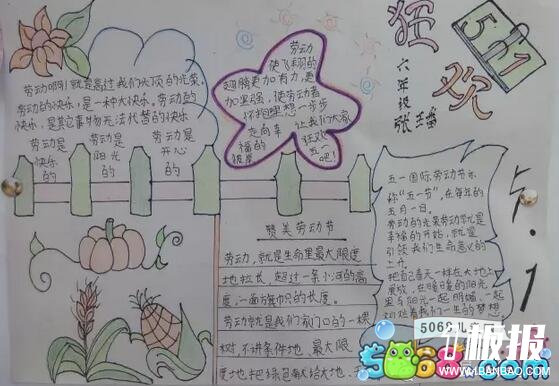 狂欢
5 1
六年级
张
劳动啊!就是高过我们头顶的光荣。
劳动的快乐,是一种大快乐,劳动的
快乐,是其它事物无法代替的快乐
劳动是
快乐
的
劳动是
阳光
的
劳动是
开心
的
劳动
使飞翔的
翅膀更加有力,更
加坚强,使劳动者
怀抱理想一步步
走向幸
福的
让我们大家
狂欢
五一
吧!
五一国际劳动节亦
称"五一节",在每年的
五月一日。
劳动的光荣劳动就是
幸福的开始,就是
引领我们生命意义的
上升
把自己春天一样在大地上
摆放,在暖暖的阳光
里与阳光一起明媚,一起
我们一生的梦想
5.1
赞美劳动节
劳动,就是生命里最大限度
地拉长,超过一条小河的高
度,一面旗帜的长度。
劳动就是我们家门口的一棵
树,不讲条件地、最大限
度地把绿色献给大地、
5068儿童网
板报
5068.com
WWW.1BANBAO.COM